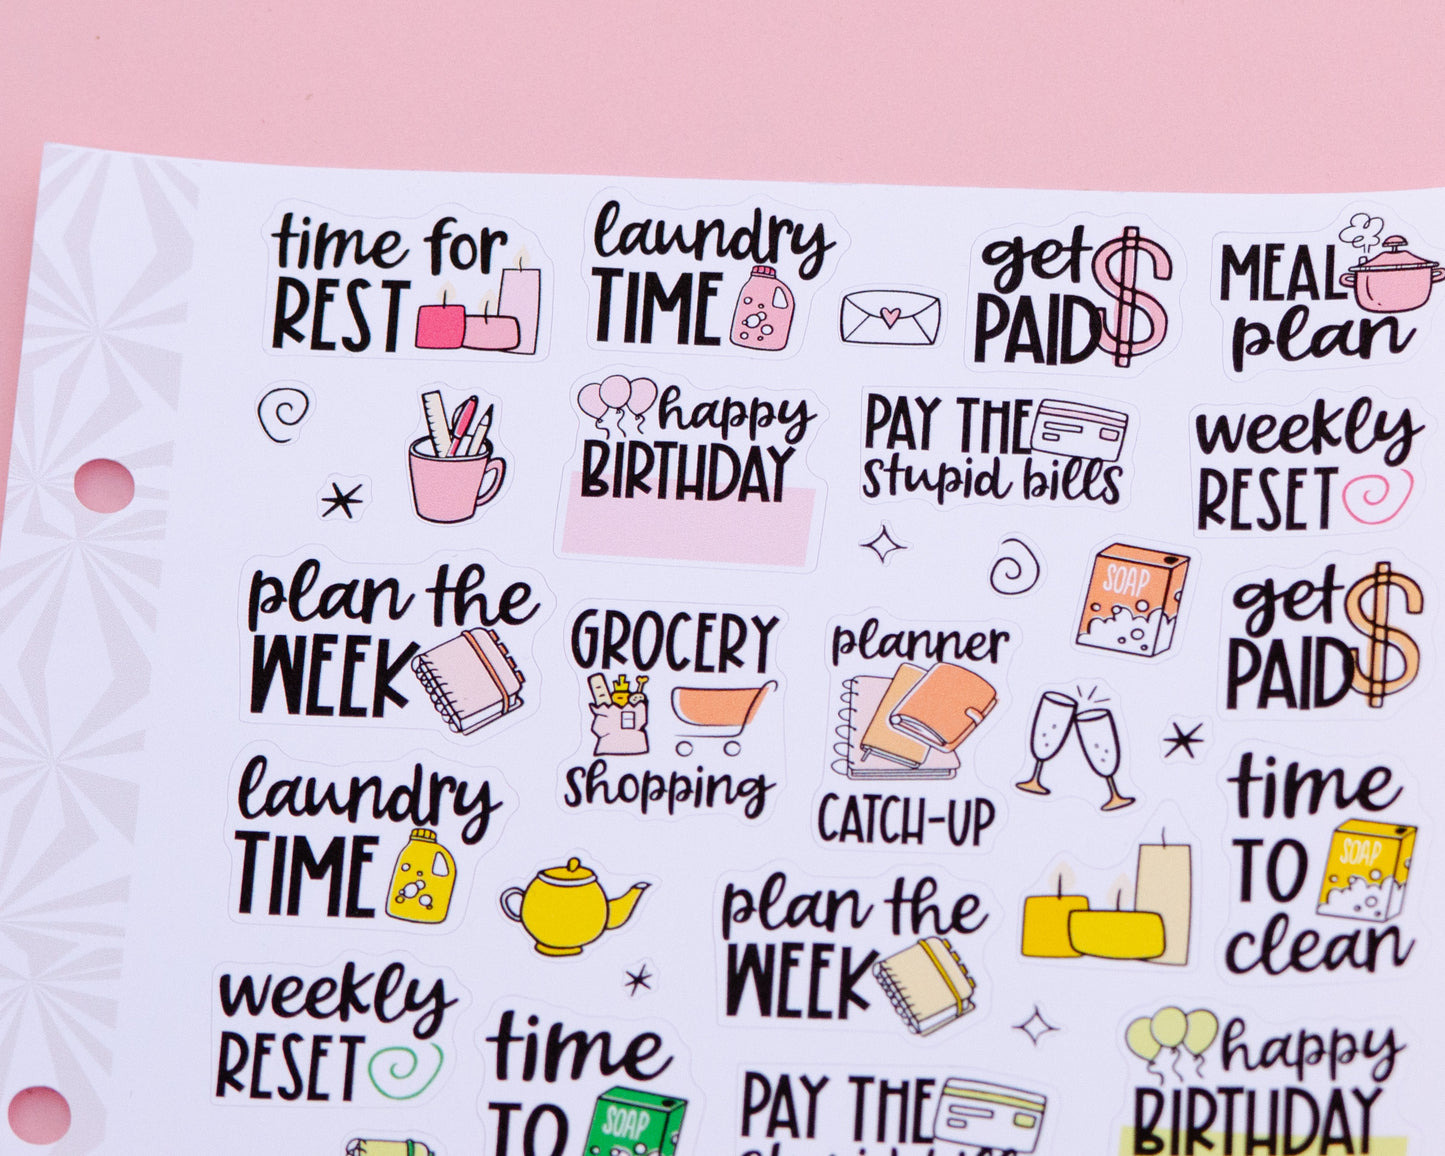 time for
REST
laundry
TIME
get
PAID
MEAL
plan
happy
BIRTHDAY
PAY THE
stupid bills
weekly
RESET
plan the
WEEK
GROCERY
shopping
planner
CATCH-UP
SOAP
get
PAID
laundry
TIME
plan the
WEEK
time
TO
SOAP
clean
weekly
RESET
time
TO
SOAP
PAY THE
stupid bills
happy
BIRTHDAY